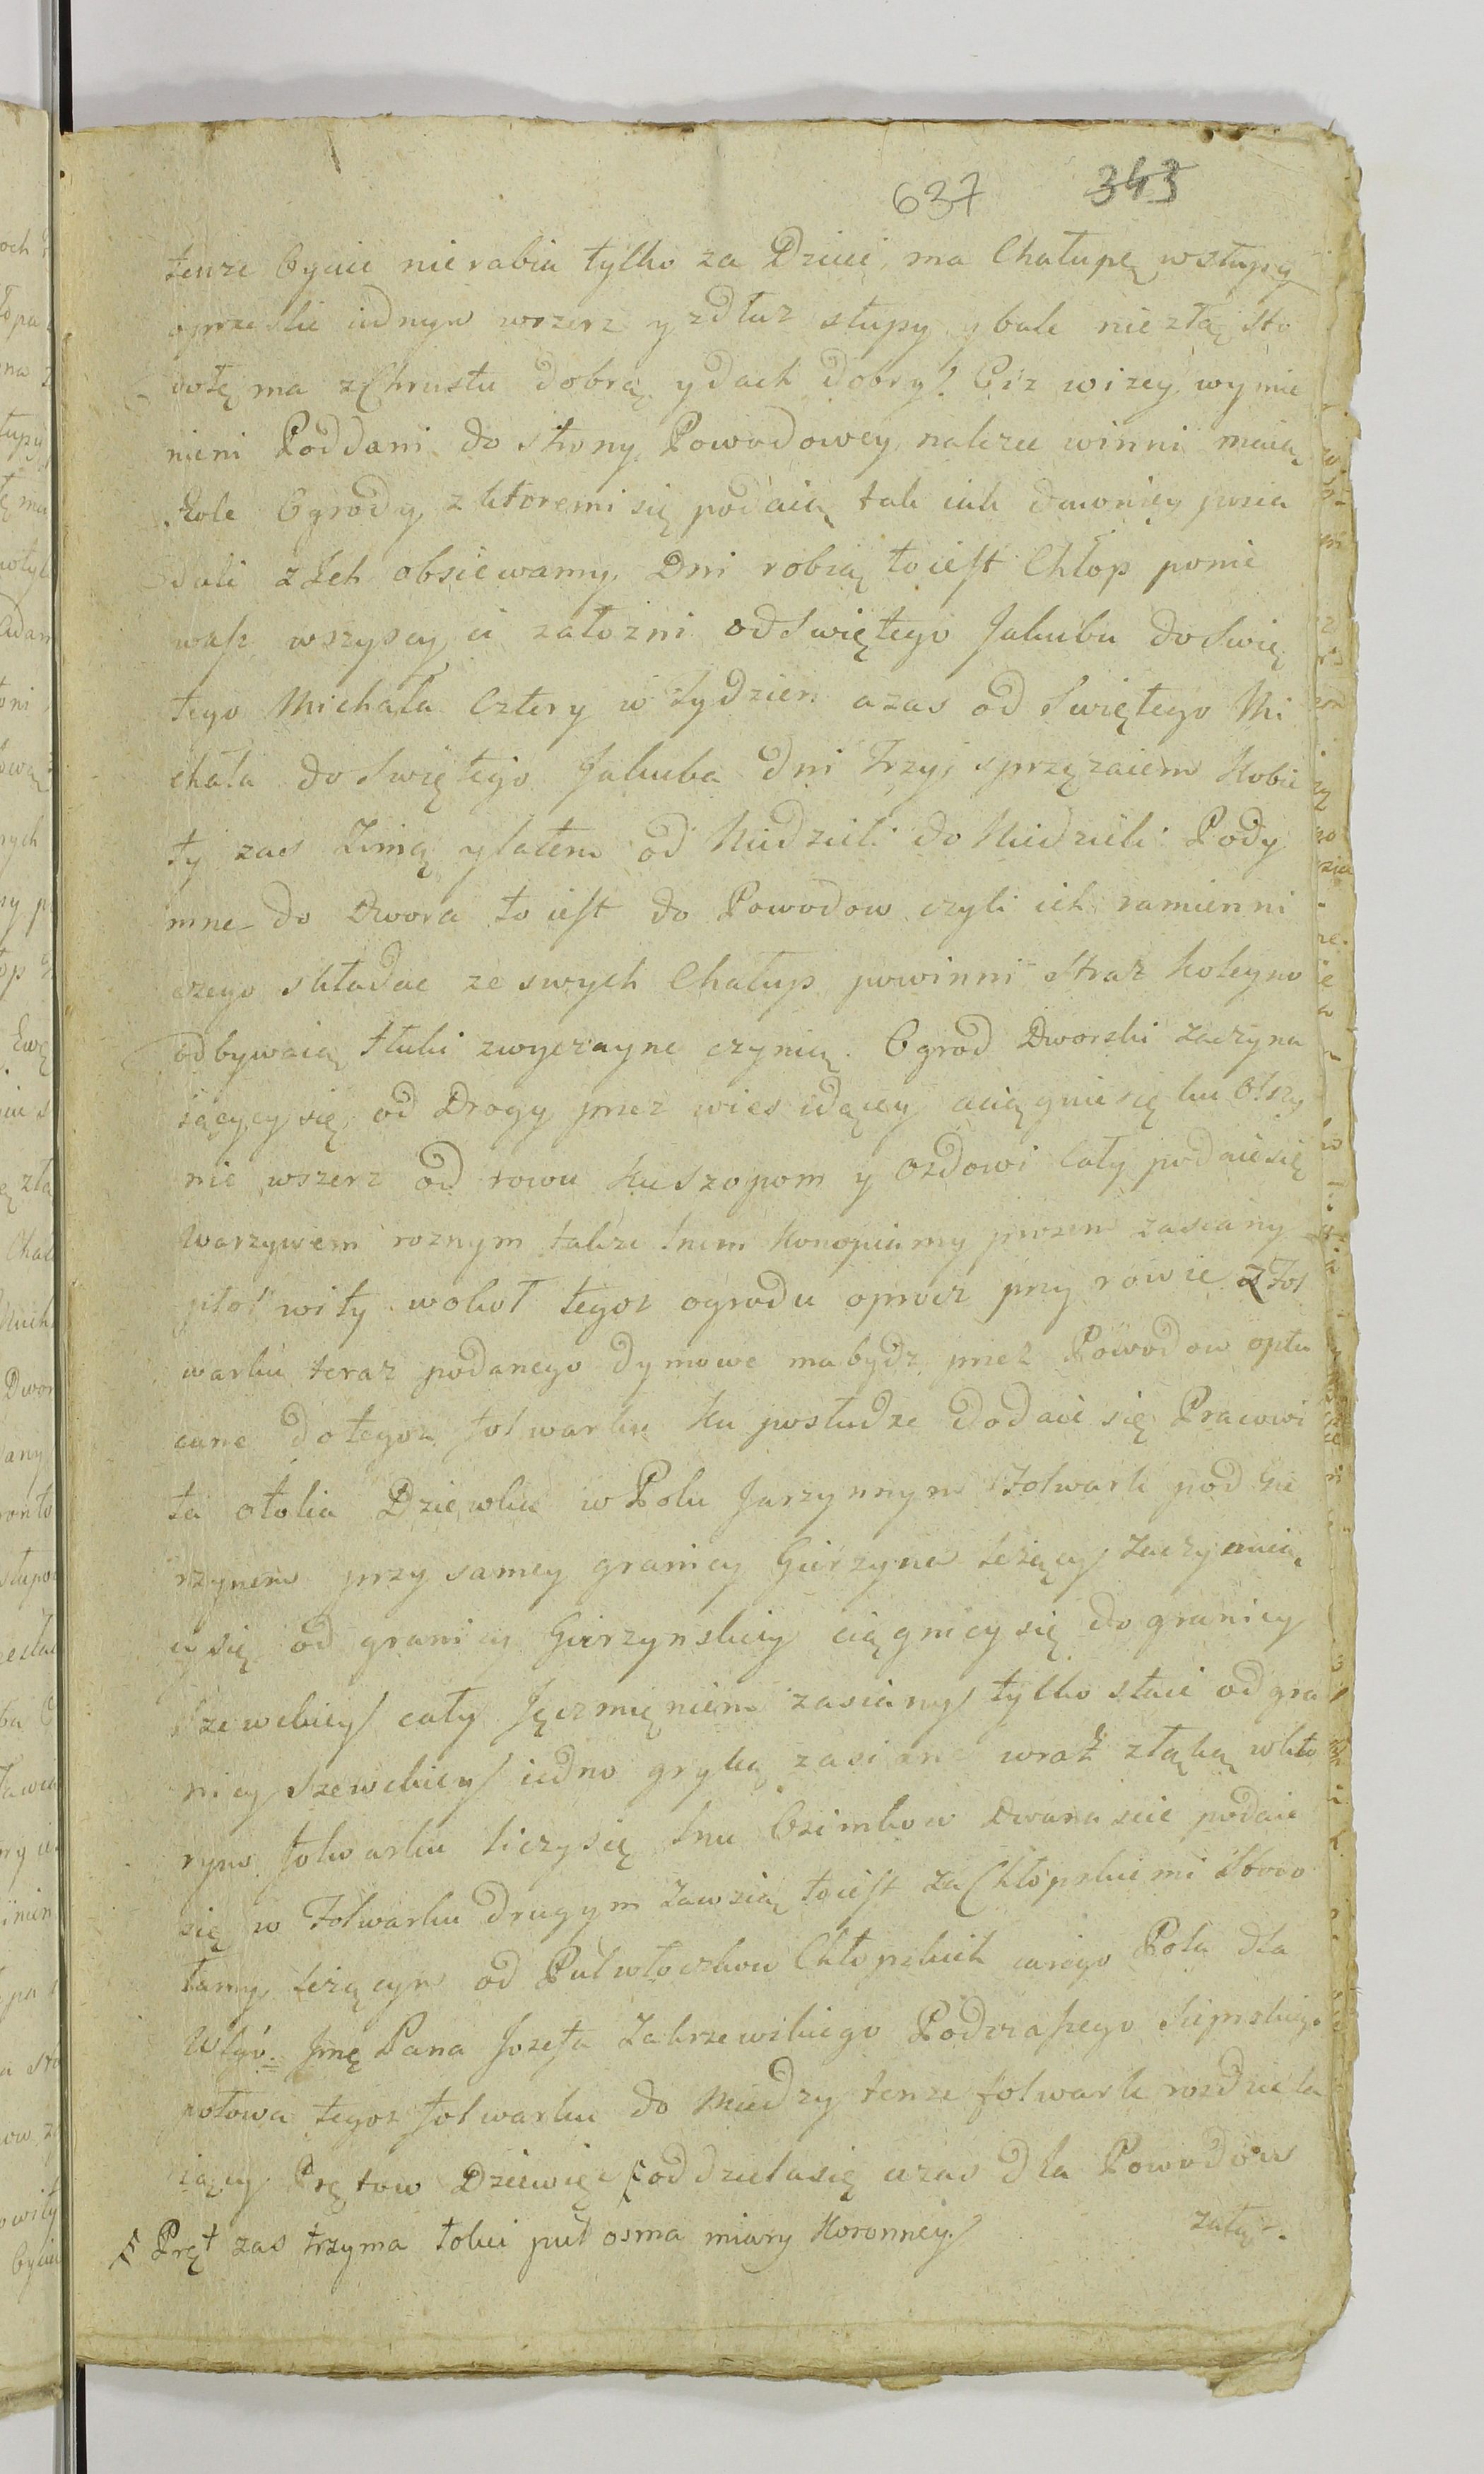 637 343
tenze Oyciec nierabia tylko za Dzieci, ma Chałupę wsłupy
oprzeslie iednym wrzerz y zdłuz słupy y bale niezłą sto
dołę ma z Chrustu dobrą y dach dobry. Ciz wizey wymie
nieni Poddani do strony Powodowey nalezec winni maią
Role Ogrody z ktoremi się podaią tak iak dawniey posia
dali z Ich obsiewamy. Dni robią to iest Chłop ponie
wasz wszyscy ci załozni od Swiętego Jakuba do Swię
tego Michała Cztery w Tydzien a zas od Swiętego Mi
chała do Swiętego Jakuba dni Trzy, sprzęzaiem Kobie
ty zas Zimą y latem od Niedzieli do Niedzieli Pody
mne do Dwora to iest do Powodow czyli ich ramienni
czego składac ze swych Chałup powinni Straz koleyno
odbywaią tłuki zwyczayne czynią. Ogrod Dworski zaczyna
iącycy się od Drogy przez wies idącey aciągnie się ku Olszy
nie wszerz od rowu ku Szopom y Ozdowi cały podaie się
Warzywem roznym takze lnem Konopiamy prosem zasiany
płot wity wokoł tegoz ogrodu oprocz przy rowie z Fol
warku teraz podanego dymowe ma bydz przez Powodow opła
cane do tegoz folwarku ku posłudze dodaie się Pracowi
ta otolia Dziewka w Polu Jarzynnym Folwark pod Gie
rzynem przy samey granicy Gierzyna lezący zaczynaią
cy się od granicy Gierzynskiey ciągnicy się do granicy
Szewckiey cały Jęczmięniem zasiany tylko staie od gra
nicy Szewckiey iedno gryką zasiane wraz złąką w kto
rym folwarku liczy się lnu Osimkow Dwanascie podaie
się w Folwarku drugym zawsią to iest za Chłopskiemi Stodo
łamy lezącym od Pułwłoczkow Chłopskich carego Pola dla
WIgo. Jmę Pana Jozefa Zakrzewskiego Podczaszego
połowa tegoz folwarku do Miedzy tenze folwark rozdziela
iącey Prętow Dziewięc oddziela się azas dla Powodow
Pręt zas trzyma łokci puł osma miary Koronney.